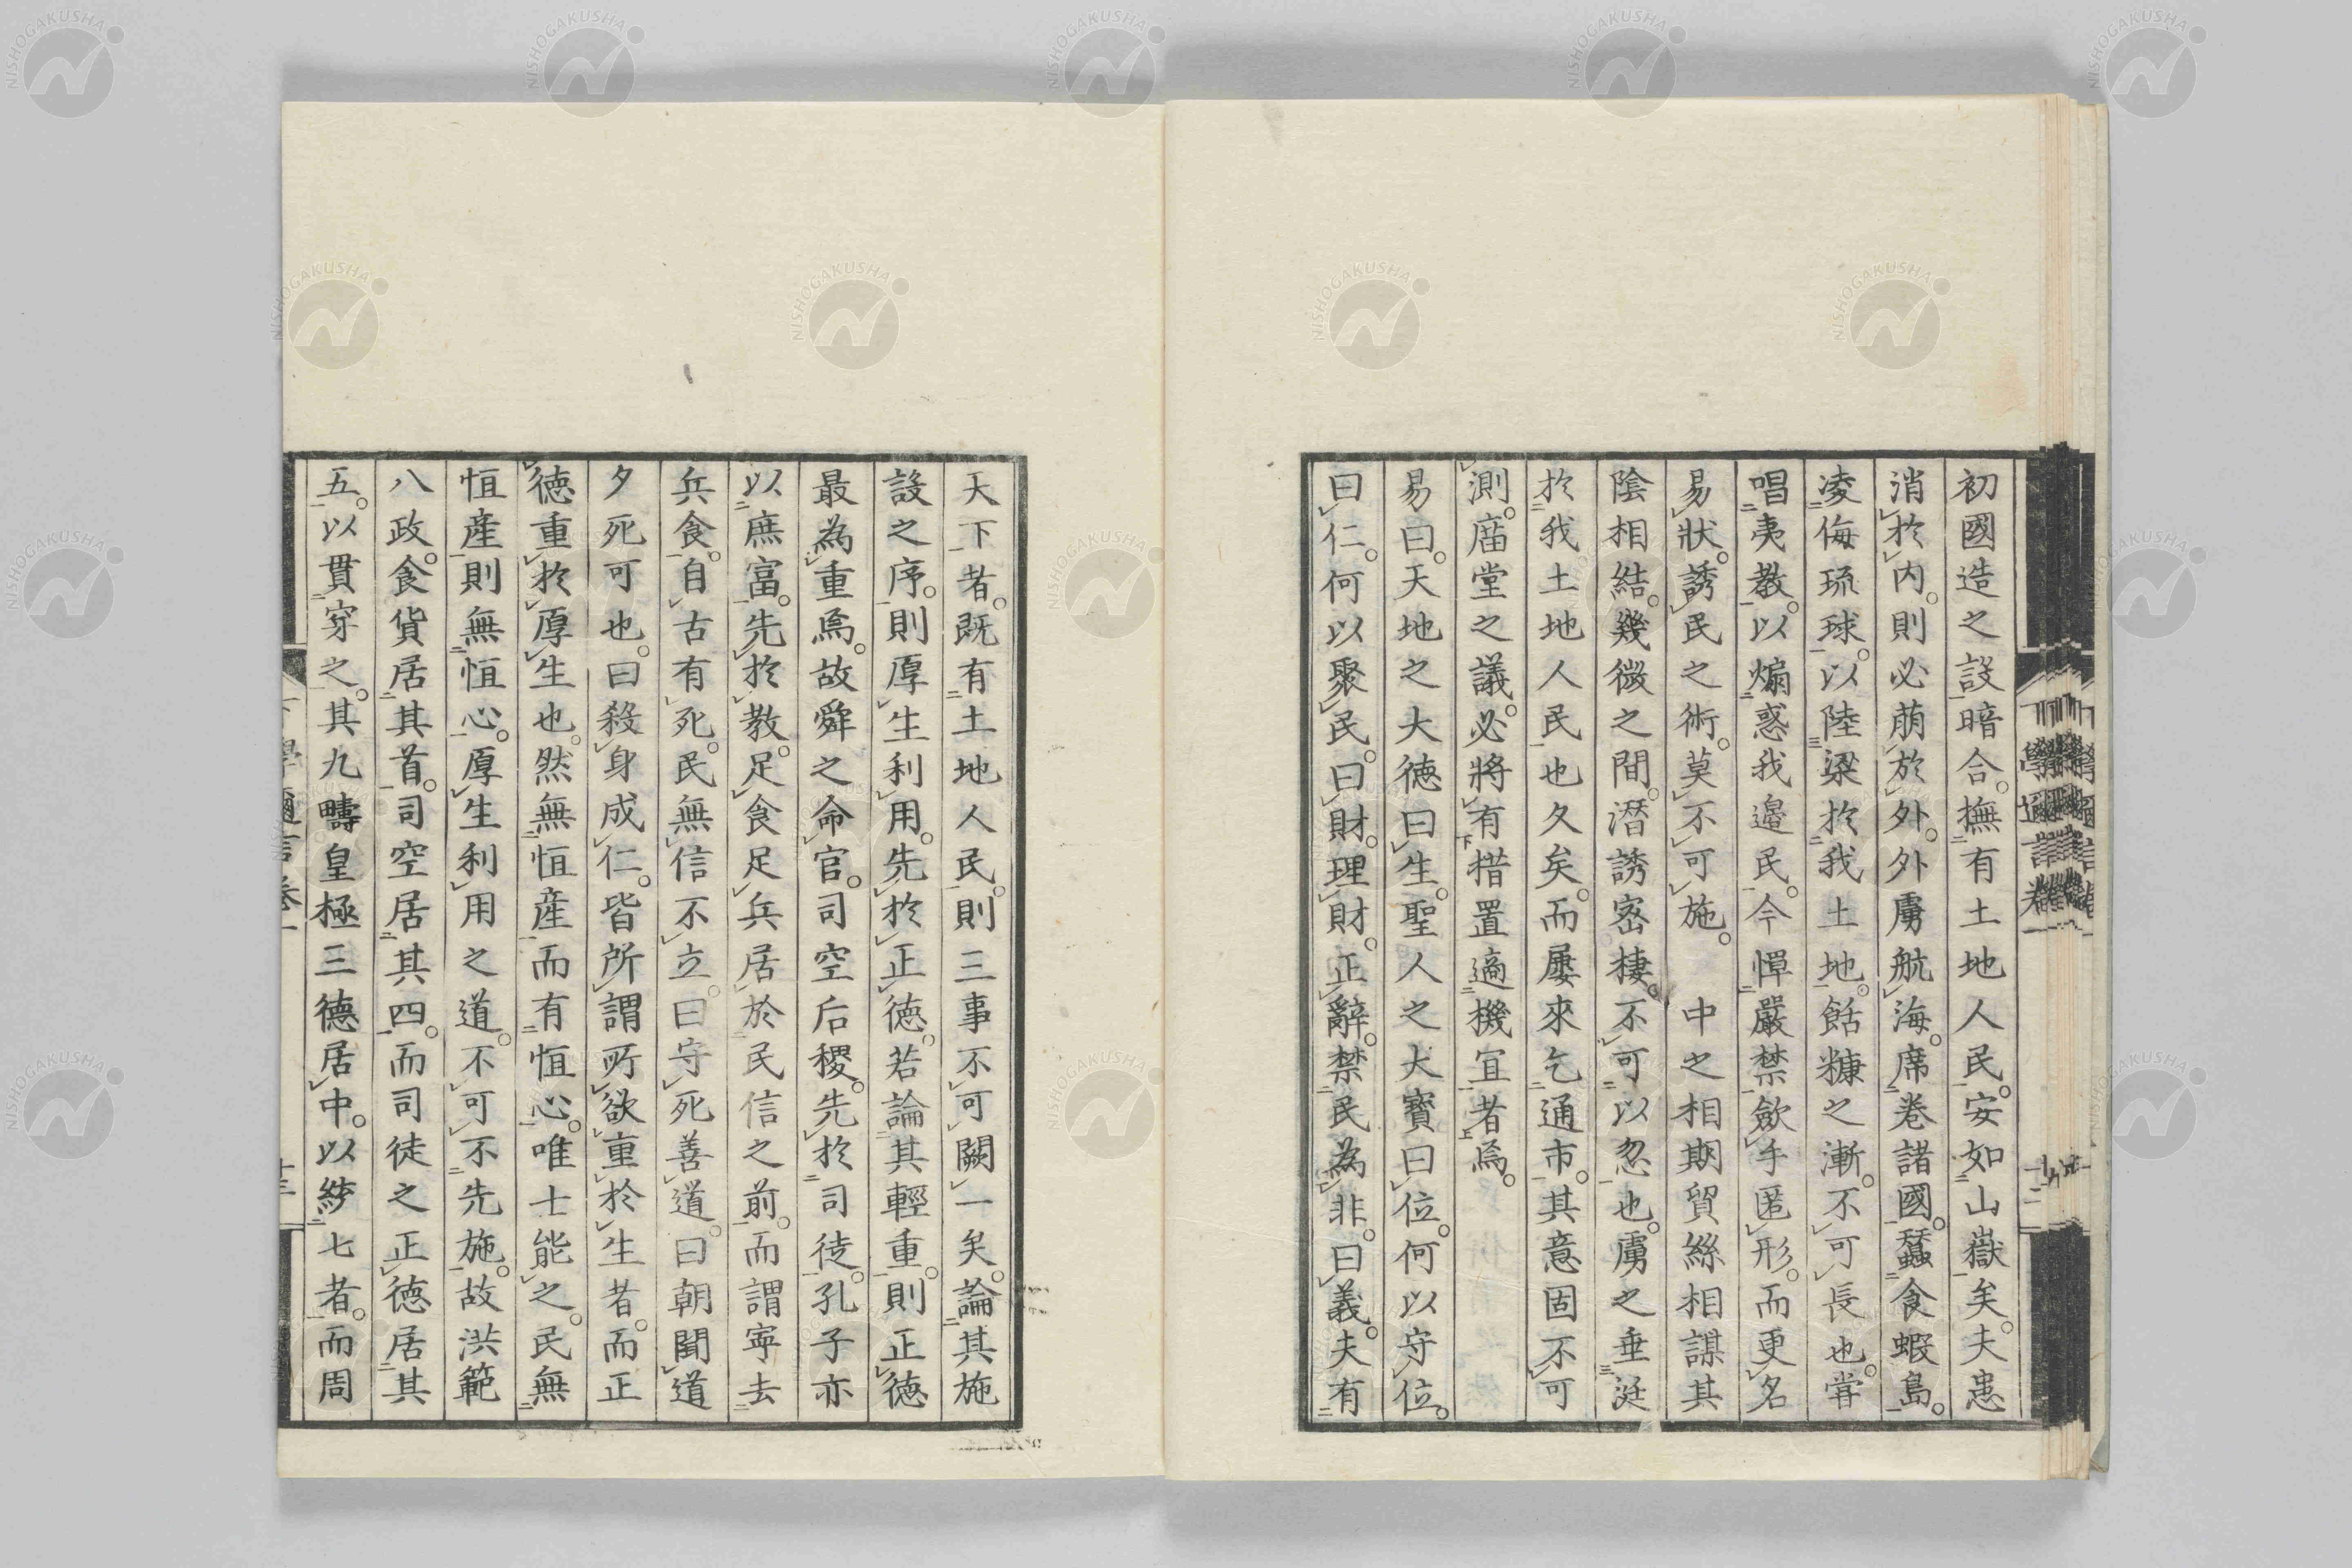 初國造之設暗合。撫有土地人民。安如山嶽矣。夫患
消於内。則必萠於外。外虜航海。席卷諸國。蠶食蝦島。
凌侮琉球。以陸梁於我土地。餂糠之漸。不可長也。嘗
唱夷教。以煽惑我邉民。今憚嚴禁。歛手匿形。而更名
易狀。誘民之術。莫不可施。 中之相期貿絲相謀其
陰相結。幾微之間。潛誘宻棲。不可以忽也。虜之垂涎
於我土地人民也久矣。而屢來乞通市。其意固不可
測。庿堂之議。必將有措置適機宜者焉。
易曰。天地之大徳曰生。聖人之大寶曰位。何以守位。
曰仁。何以聚民。曰財。理財。正辭。禁民為非。曰義。夫有
天下者。既有土地人民。則三事不可闕一矣。論其施
設之序。則厚生利用。先於正徳。若論其輕重。則正徳
最為重焉。故舜之命官。司空后稷。先於司徒。孔子亦
以庶富。先於教。足食足兵居於民信之前。而謂寧去
兵食。自古有死。民無信不立。曰守死善道。曰朝聞道
夕死可也。曰殺身成仁。皆所謂所欲重於生者。而正
徳重於厚生也。然無恒産而有恒心。唯士能之。民無
恒産則無恒心。厚生利用之道。不可不先施。故洪範
八政。食貨居其首。司空居其四。而司徒之正徳居其
五。以貫穿之。其九疇皇極三徳居中。以綍七者。而周
下學邇言卷一
十三
NISHOGAKUSHA